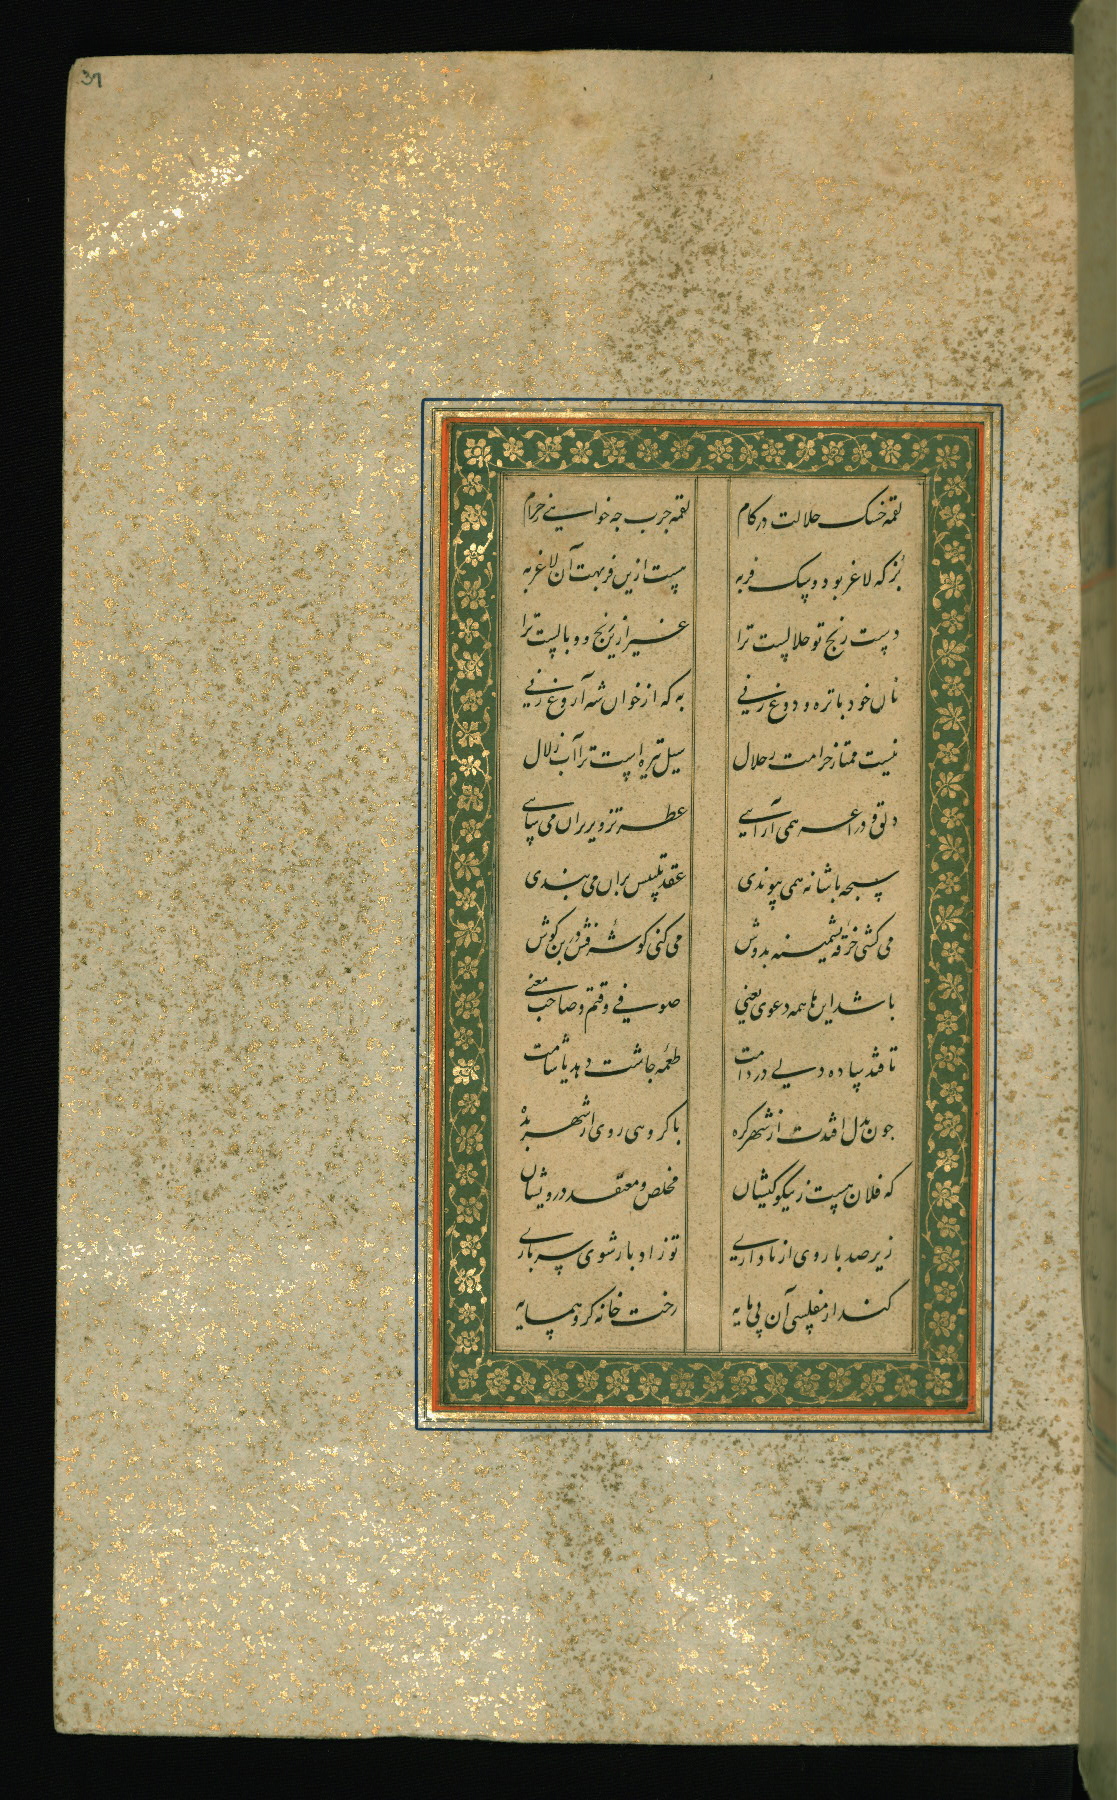 37
لقمه خشک حلالت در کام لقمه چرب چه ز حرام
بز که لاغر بود و سک فربه هست ازین فربهت آن لاغر به
دست رنج تو حلالست ترا غیر ازین رنج و وبالست ترا
نان خود با تره و دوغ زنی به که از خوان شه آروغ زنی
نیست ممتاز حرامت ز حلال سیل تیره است ترا آب زلال
دلق و دراعه همی آرایی عطر تزویر بران می سایی
سبحه با شانه همی پیوندی عقد تلبیس بران می بندی
می کشی خرقه پشمینه بدوش می کنی کوشه فش در بن کوش
باشد این ها همه دعوی یعنی صوفی وقتم و صاحب معنی
تا فتد ساده دلی در دامت طعمه چاشت دهد یا شامت
چون بدل افتدت از شهر کره با کروهی روی از شهر بده
که فلان هست ز نیکو کیشان مخلص و معتقد درویشان
زیر صد بار وی از ناداری تو ز ادبار شوی سرباری
کند از مفلسی آن بی مایه رخت خانه کرو همسایه